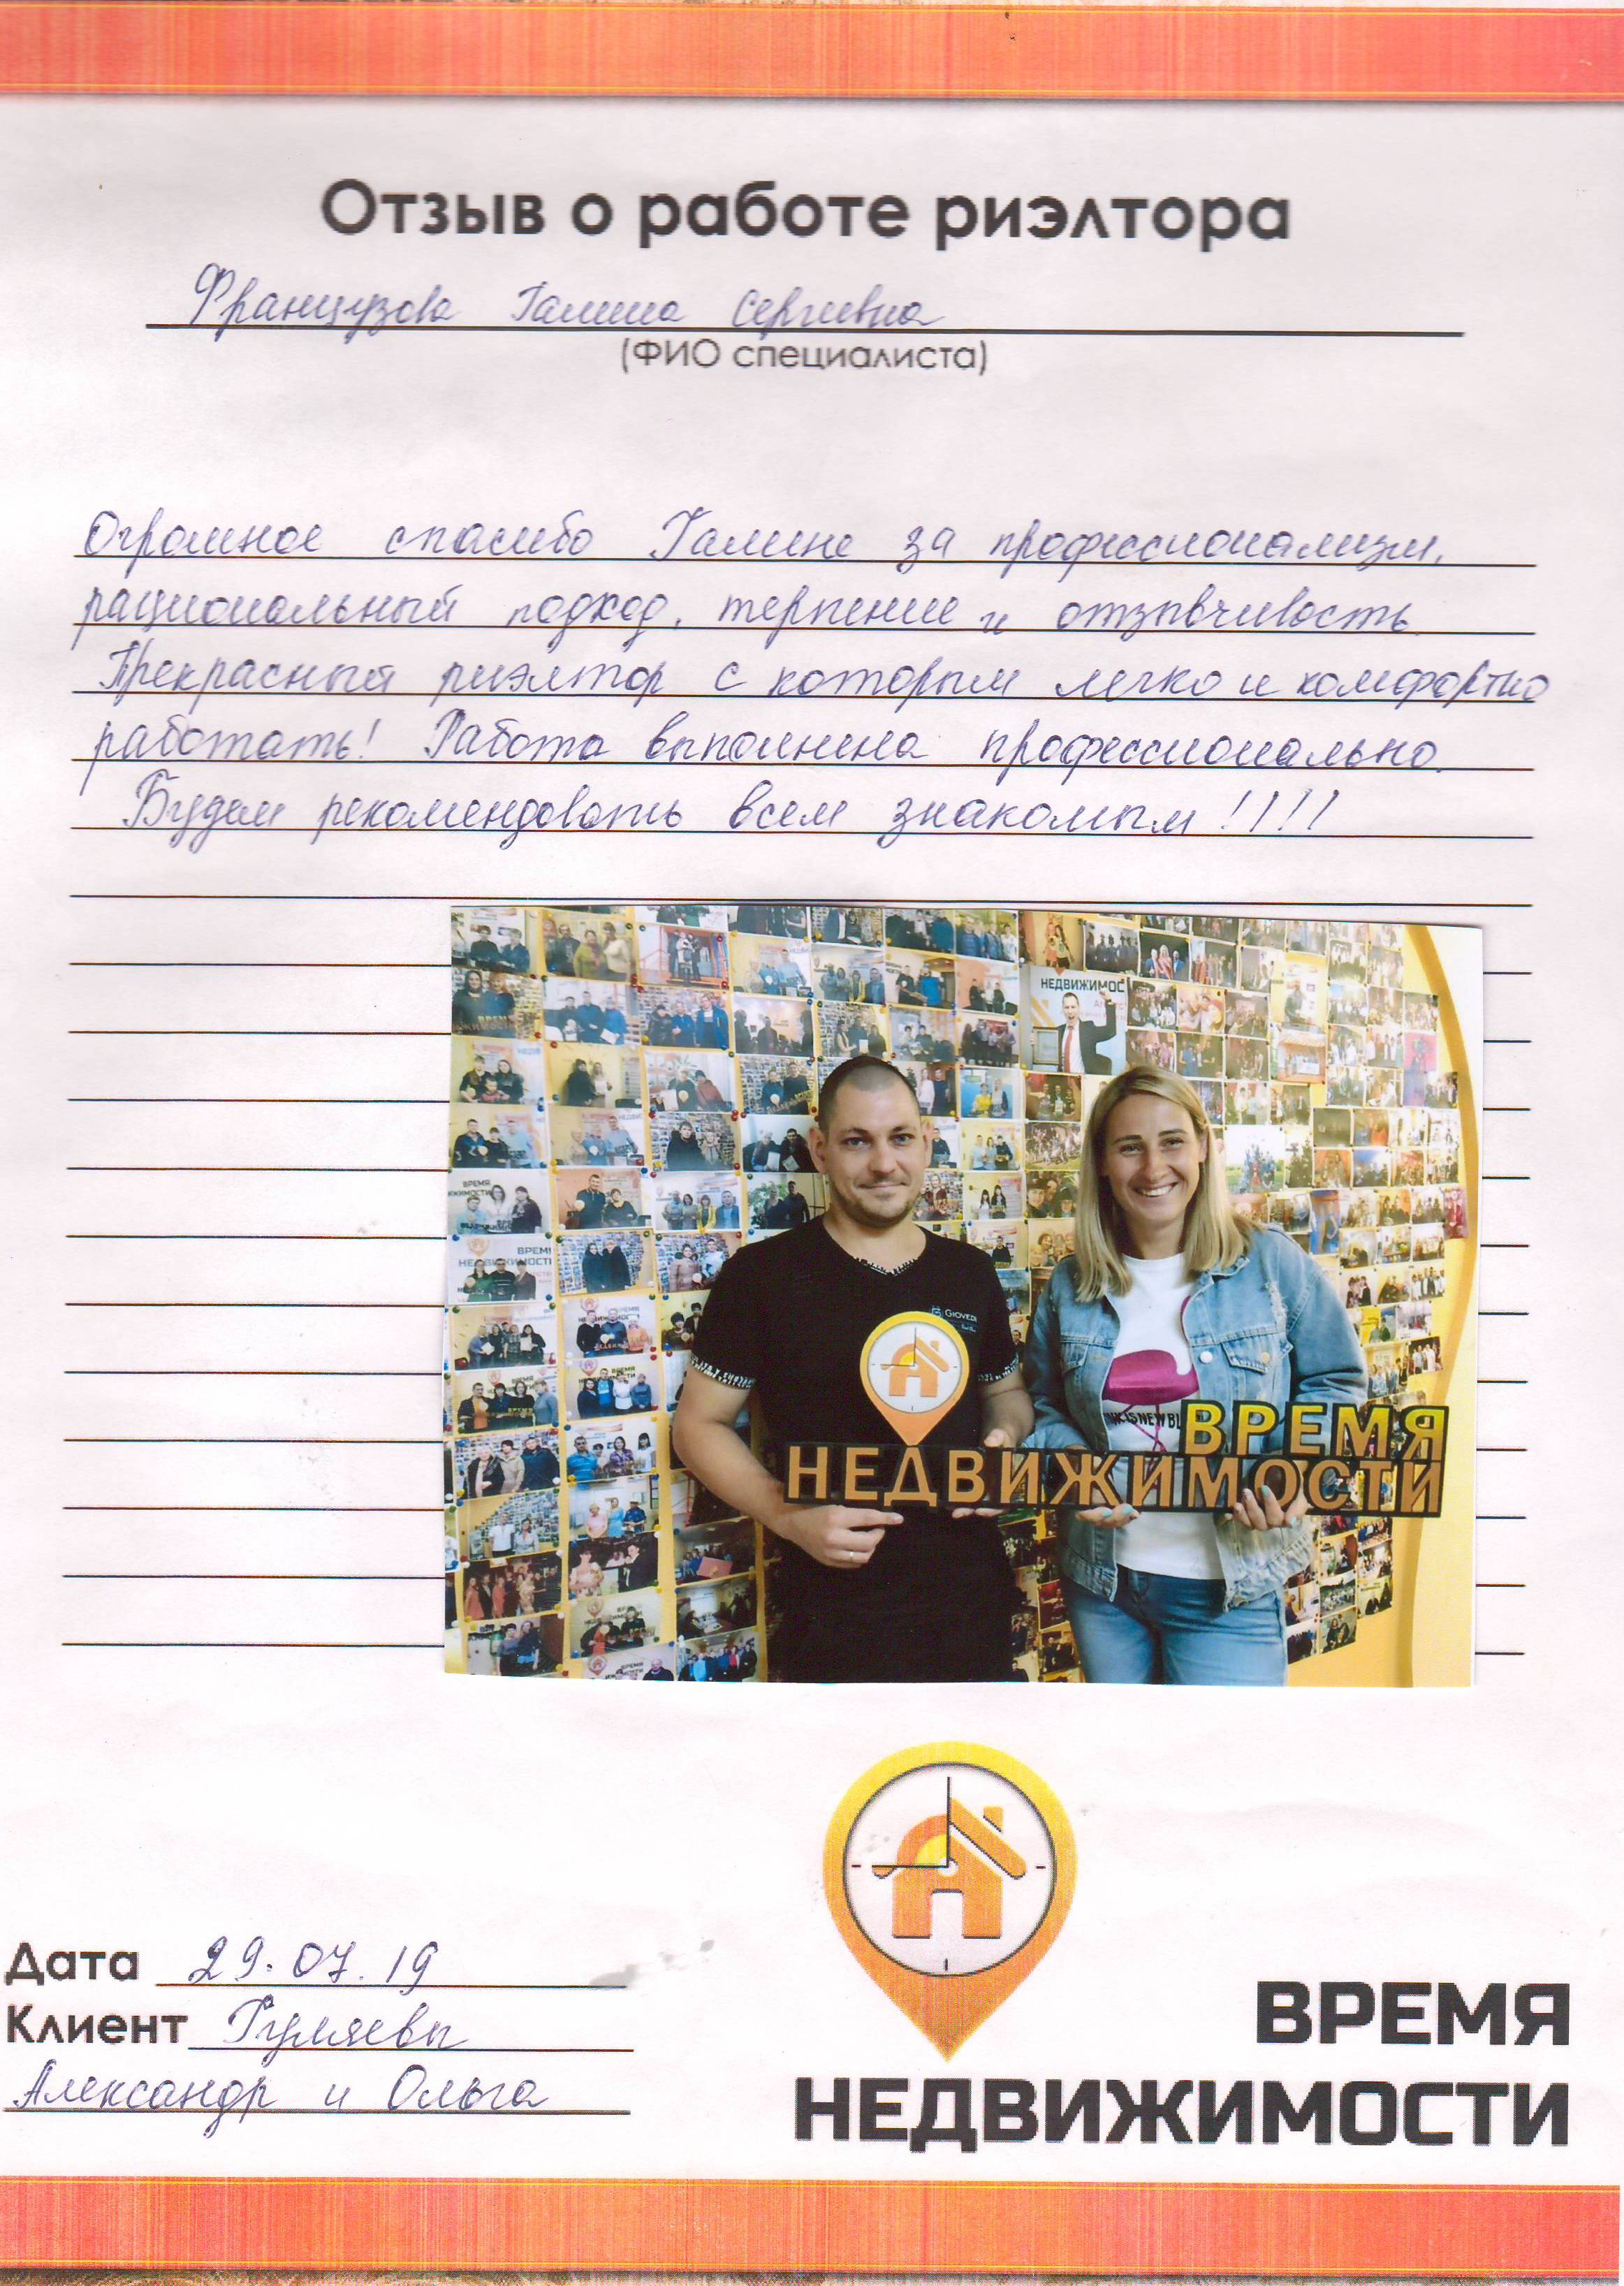 Отзыв о работе риэлтора
Французова Галина Сергиевна
(ФИО специалиста)
Огромное спасибо Галине за профессионализм,
рациональный подход, терпение и отзывчивость.
Прекрасный риэлтор с которым легко и комфортно
работать! Работа выполнена профессионально.
Будем рекомендовать всем знакомым!!!!
НЕДВИЖИМОС
ВРЕМЯ
GIOVEDI
ВРЕМЯ
НЕДВИЖИМОСТИ
Дата 29.07.19
Клиент Гуляевы
Александр и Ольга
ВРЕМЯ
НЕДВИЖИМОСТИ